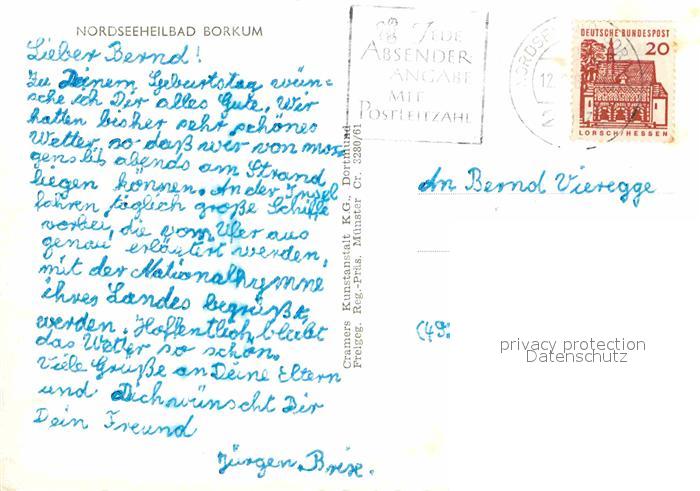 NORDSEEHEILBAD BORKUM
Lieber Bernd!
Zu Deinem Geburtstag wün-
sche ich Dir alles Gute. Wir
hatten bisher sehr schönes
Wetter, so daß wir von mor-
gens bis abends am Strand
liegen können. An der Insel
fahren täglich große Schiffe
vorbei, die vom Ufer aus
genau erläutert werden,
mit der Nationalhymne
ihres Landes begrüßt
werden. Hoffentlich bleibt
das Wetter so schön.
Viele Grüße an Deine Eltern
und Dich wünscht Dir
Dein Freund
Jürgen Brix.
Cramers Kunstanstalt K.G., Dortmund
Freigeg. Reg.-Präs. Münster Cr. 3280/61
JEDE
ABSENDER
ANGABE
MIT
POSTLEITZAHL
12.
2
DEUTSCHE BUNDESPOST
20
LORSCH/HESSEN
An Bernd Vieregge
(49:
privacy protection
Datenschutz